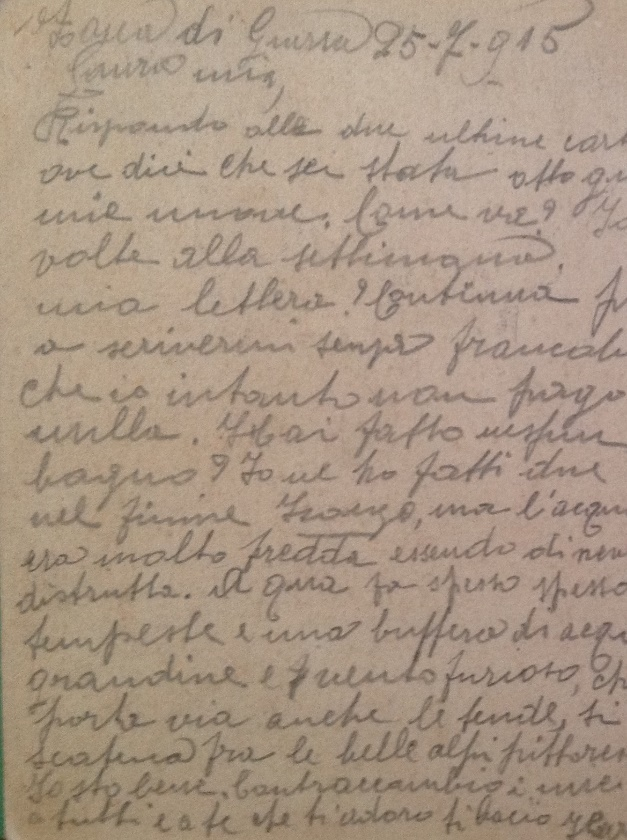 Zona di Guerra 25-7-915
mia,
Rispondo alle due ultime cart
ove dici che sei stata otto gi
mie nuove. Come va? Io
volte alla settimana.
mia lettera? Continua
a scrivermi sempre francob
che io intanto non pago
nulla. Hai fatto nessun
bagno? Io ne ho fatti due
nel fiume Isonzo, ma l'acqu
era molto fredda essendo di nev
distrutta. qua fa spesso spesso
tempeste e una buffera di acqu
grandine e vento furioso, ch
porta via anche le tende, si
scatena fra le belle alpi pittores
Io sto bene. Contraccambio i
a tutti e a te che ti adoro ti bacio